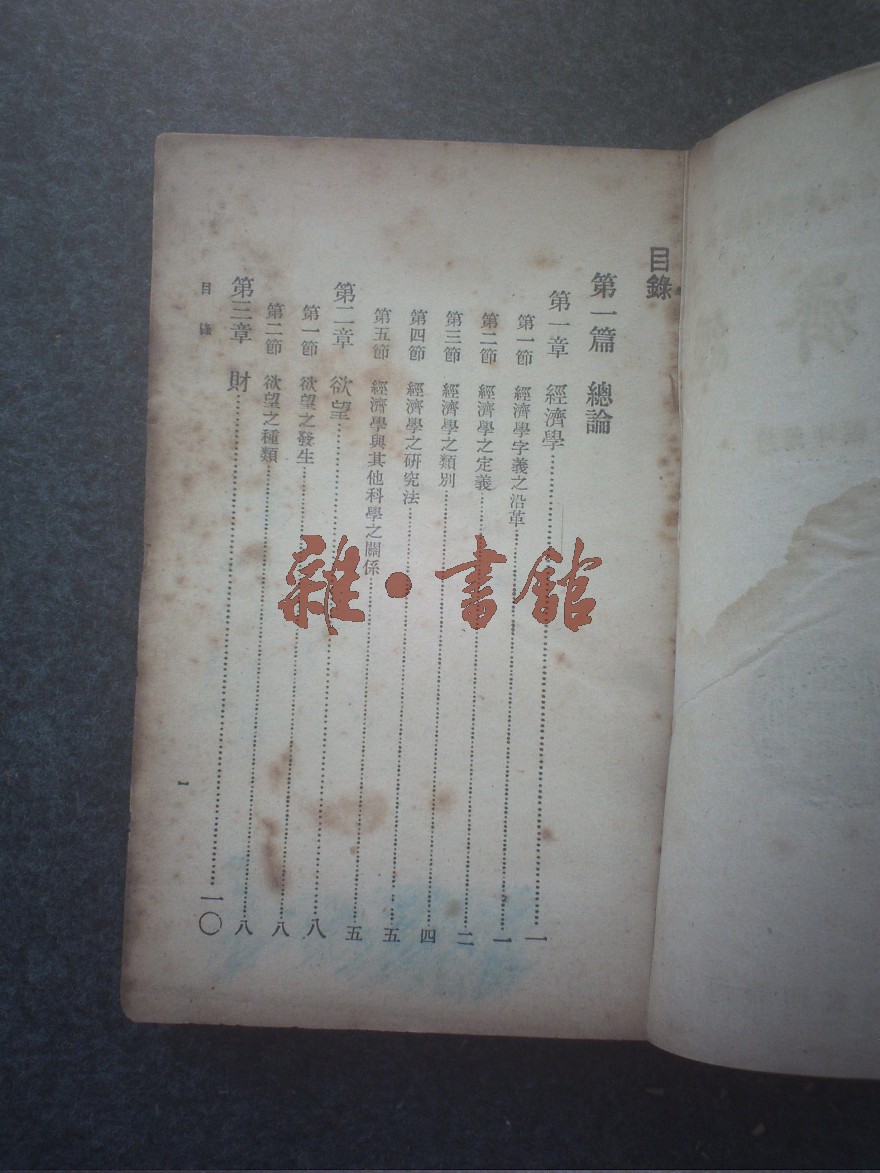 目錄
第一篇 總論
第一章 經濟學……一
第一節 經濟學字義之沿革……一
第二節 經濟學之定義……二
第三節 經濟學之類別……四
第四節 經濟學之研究法……五
第五節 經濟學與其他科學之關係……五
第二章 欲望……八
第一節 欲望之發生……八
第二節 欲望之種類……八
第三章 財……一〇
目錄 一
雜·書館